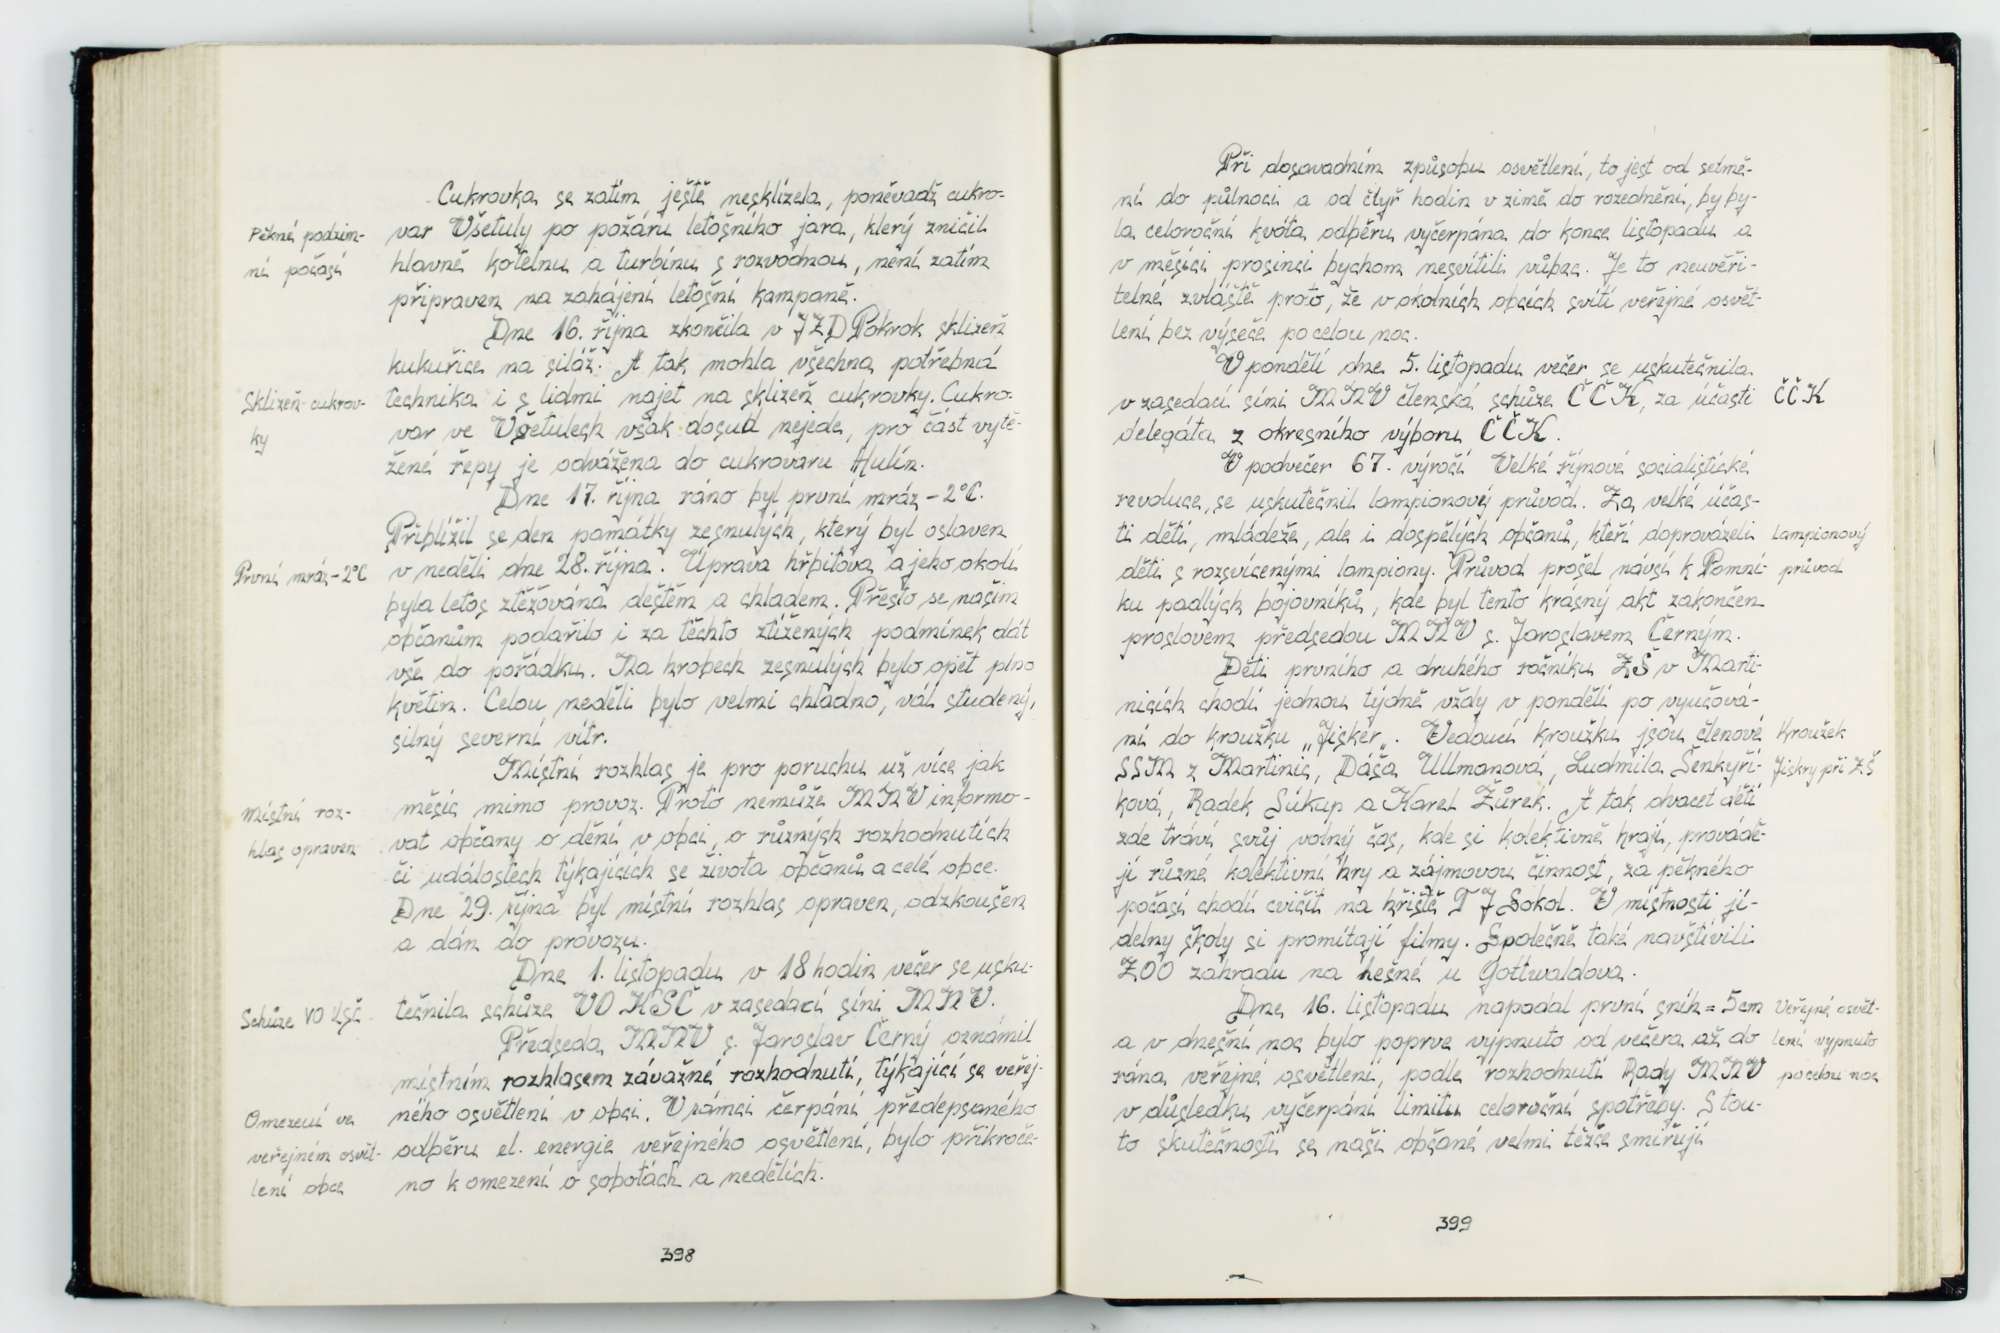 Cukrovka se zatím ještě nesklízela, poněvadž cukro-
Pěkné podzim-
var Všetuly po požáru letošního jara, který zničil
ní počasí
hlavně kotelnu a turbínu s rozvodnou, není zatím
připraven na zahájení letošní kampaně.
Dne 16. října zkončila v JZD Pokrok sklizeň
kukuřice na siláž. A tak mohla všechna potřebná
Sklizeň cukrov-
technika i s lidmi najet na sklizeň cukrovky. Cukro-
ky
var ve Všetulech však dosud nejede, pro část vytě-
žené řepy je odvážena do cukrovaru Hulín.
Dne 17. října ráno byl první mráz -2°C.
Přiblížil se den památky zesnulých, který byl oslaven
První mráz -2°C
v neděli dne 28. října. Úprava hřbitova a jeho okolí
byla letos ztěžována deštěm a chladem. Přesto se našim
občanům podařilo i za těchto ztížených podmínek dát
vše do pořádku. Na hrobech zesnulých bylo opět plno
květin. Celou neděli bylo velmi chladno, vál studený,
silný severní vítr.
Místní rozhlas je pro poruchu už více jak
Místní roz-
měsíc mimo provoz. Proto nemůže MNV informo-
hlas opraven
vat občany o dění v obci, o různých rozhodnutích
či událostech týkajících se života občanů a celé obce.
Dne 29. října byl místní rozhlas opraven, odzkoušen
a dán do provozu.
Dne 1. listopadu v 18 hodin večer se usku-
Schůze VO KSČ
tečnila schůze VO KSČ v zasedací síni MNV.
Předseda MNV s. Jaroslav Černý oznámil
místním rozhlasem závažné rozhodnutí, týkající se veřej-
Omezení ve
ného osvětlení v obci. V rámci čerpání předepsaného
veřejném osvět-
odběru el. energie veřejného osvětlení, bylo přikroče-
lení obce
no k omezení o sobotách a nedělích.
398
Při dosavadním způsobu osvětlení, to jest od setmě-
ní do půlnoci a od čtyř hodin v zimě do rozednění, by by-
la celoroční kvóta odběru vyčerpána do konce listopadu a
v měsíci prosinci bychom nesvítili vůbec. Je to neuvěři-
telné zvláště proto, že v okolních obcích svítí veřejné osvět-
lení bez výseče po celou noc.
V pondělí dne 5. listopadu večer se uskutečnila
v zasedací síni MNV členská schůze ČČK, za účasti
ČČK
delegáta z okresního výboru ČČK.
V podvečer 67. výročí Velké říjnové socialistické
revoluce, se uskutečnil lampionový průvod. Za velké účas-
ti dětí, mládeže, ale i dospělých občanů, kteří doprovázeli
Lampionový
děti s rozsvícenými lampiony. Průvod prošel návsí k Pomní-
průvod
ku padlých bojovníků, kde byl tento krásný akt zakončen
proslovem předsedou MNV s. Jaroslavem Černým.
Děti prvního a druhého ročníku ZŠ v Marti-
nicích chodí jednou týdně vždy v pondělí po vyučová-
ní do kroužku „Jisker„. Vedoucí kroužku jsou členové
Kroužek
SSM z Martinic, Dáša Ullmanová, Ludmila Šenkyří-
Jiskry při ZŠ
ková, Radek Súkup a Karel Žůrek. A tak dvacet dětí
zde tráví svůj volný čas, kde si kolektivně hrají, provádě-
jí různé kolektivní hry a zájmovou činnost, za pěkného
počasí chodí cvičit na hřiště TJ Sokol. V místnosti jí-
delny školy si promítají filmy. Společně také navštívili
ZOO zahradu na Lešné u Gottwaldova.
Dne 16. listopadu napadal první sníh = 5cm
Veřejné osvět-
a v dnešní noc bylo poprve vypnuto od večera až do
lení vypnuto
rána veřejné osvětlení, podle rozhodnutí Rady MNV
po celou noc
v důsledku vyčerpání limitu celoroční spotřeby. S tou-
to skutečností se naši občané velmi těžce smiřují
399